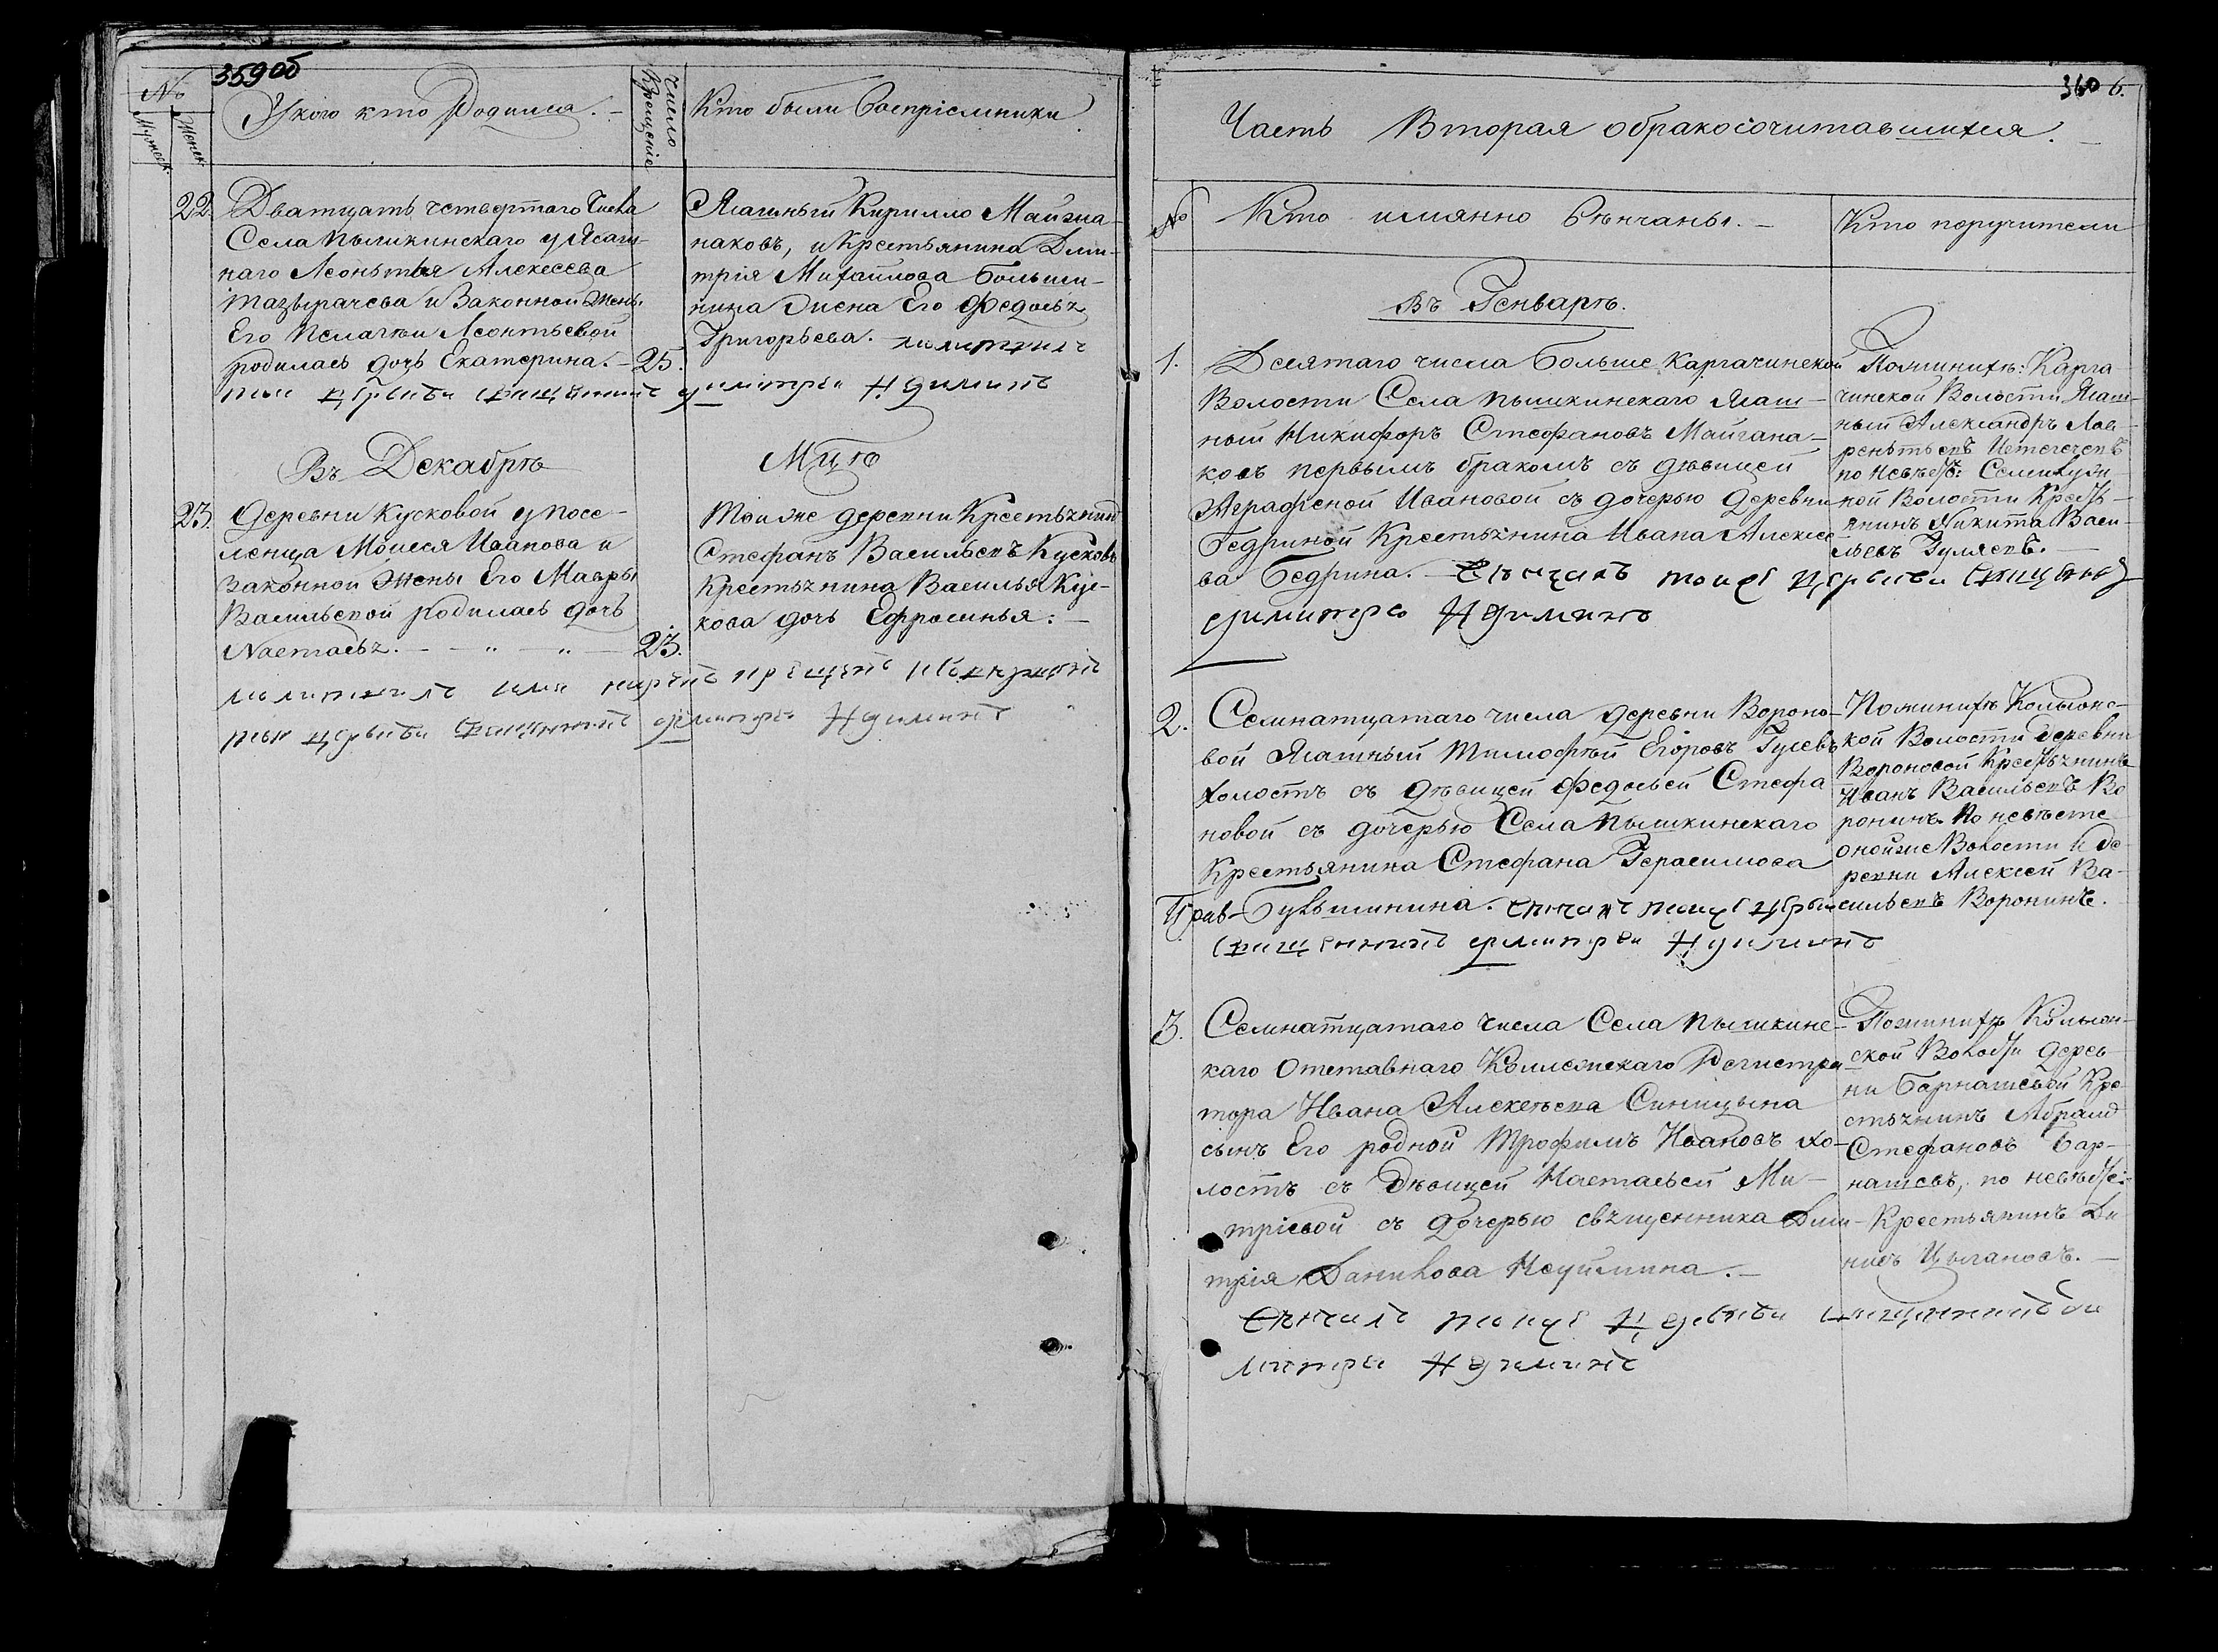 359 об
№
Мужеск.
Женск.
У кого кто Родился. -
Число Крещение
Кто были Восприемники
22. Дватцать четвертаго Числа
Села Пышкинскаго у Ясаш-
наго Леонтья Алексеева
Тазырачева и Законной Жены
Его Пелагеи Леонтьевой
родилась дочь Екатерина. - 25.
Ясашный Кирилло Майзна-
наковъ, и Крестьянина Дми-
трія Михайлова Больша-
нина Жена Его Федосья
Григорьева. молитвилъ
той церкви священникъ димитрей Нѣдиминъ
Въ Декабрѣ
Мцѣ
23. Деревни Кусковой у посе-
ленца Моисея Иванова и
Законной Жены Его Мавры
Васильевой родилась дочь
Настасья. - - „ - „ - 23.
Тои же деревни Крестьянинъ
Стефанъ Васильевъ Кусковъ
Крестьянина Василья Кус-
кова дочь Ефросинья. -
молитвилъ имя нарекъ крещенъ
той церкви священникъ димитрей
360 6.
Часть Вторая о бракосочитавшихся. -
№
Кто имянно Вѣнчаны. -
Кто поручители
Въ Генварѣ.
1. Десятаго числа Больше Каргачинской
Волости Села Пышкинскаго Ясаш-
ный Никифоръ Стефановъ Майгана-
ковъ первымъ бракомъ съ девицей
Аграфеной Ивановой съ дочерью деревни
Бедриной Крестьянина Ивана Алексее
ва Бедрина. - Вѣнчалъ тоиже церкви священ
димитрей
По женихѣ: Карга
чинской Волости Ясаш-
ный Александръ Лав-
рентьевъ
по невѣс: Семилуж-
ной Волости Кресть-
янинъ Никита Васи-
льевъ Гуляевъ. -
2. Семнатцатаго числа деревни Вороно-
вой Ясашный Тимофѣй Егоровъ Гусевъ
холостъ съ дѣвицей Федосьей Стефа
новой съ дочерью Села Пышкинскаго
Крестьянина Стефана Герасимова
вѣнчалъ тоиже церкви
священникъ димитрей
По женихѣ Колыонс-
кой Волости Деревни
Вороновой Крестьянинъ
Иванъ Васильевъ Во
ронинъ. По невѣсте
оной же Волости и де-
ревни Алексей Ва-
сильевъ Воронинъ.
3. Семнатцатаго Числа Села Пышкинс-
каго Отставнаго Коллежскаго Регистра
тора Ивана Алексѣева Синицына
сынъ Его родной Трофимъ Ивановъ хо-
лостъ съ Дѣвицей Настасьей Ми-
тріевой съ дочерью священника Дми-
трія Данилова
Вѣнчалъ тоиже церкви священникъ ди
митрей
По женихѣ Колыон-
ской Волости дерев
ни Барнашевой Кре
стьянинъ Абрамъ
Стефановъ Бар-
нашевъ, по невѣсте:
Крестьянинъ Де
нисъ Цыгановъ. -